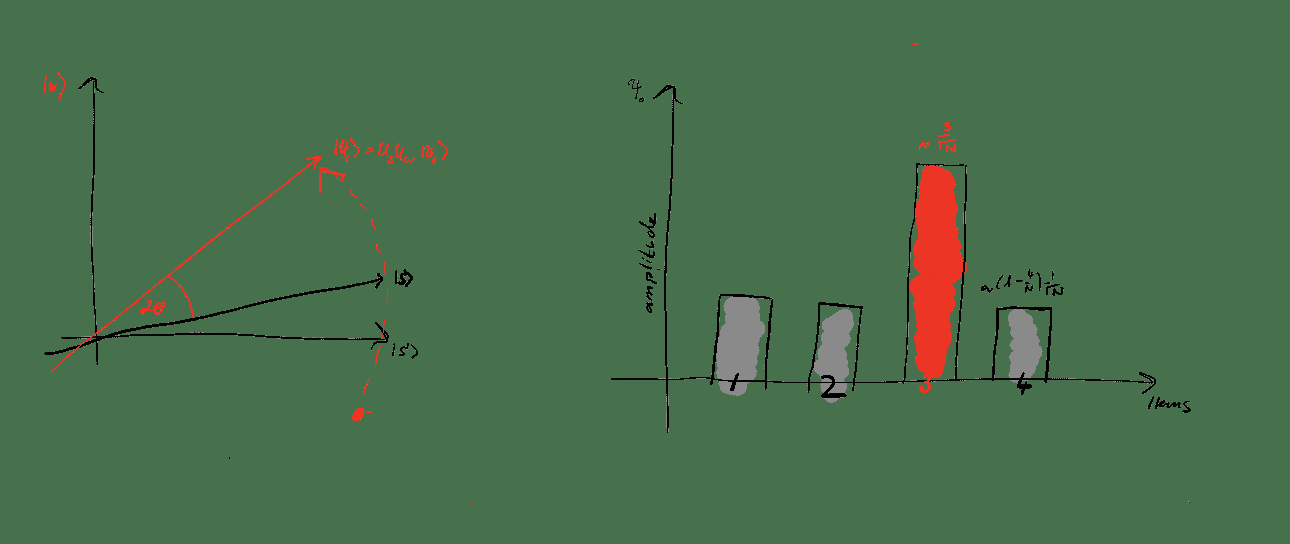 |w⟩
|ψ₁⟩ = UₛU_w |ψ₀⟩
2θ
|s⟩
|s'⟩
amplitude
~ 3/√N
~(1-4/N) 1/√N
1
2
3
4
Items